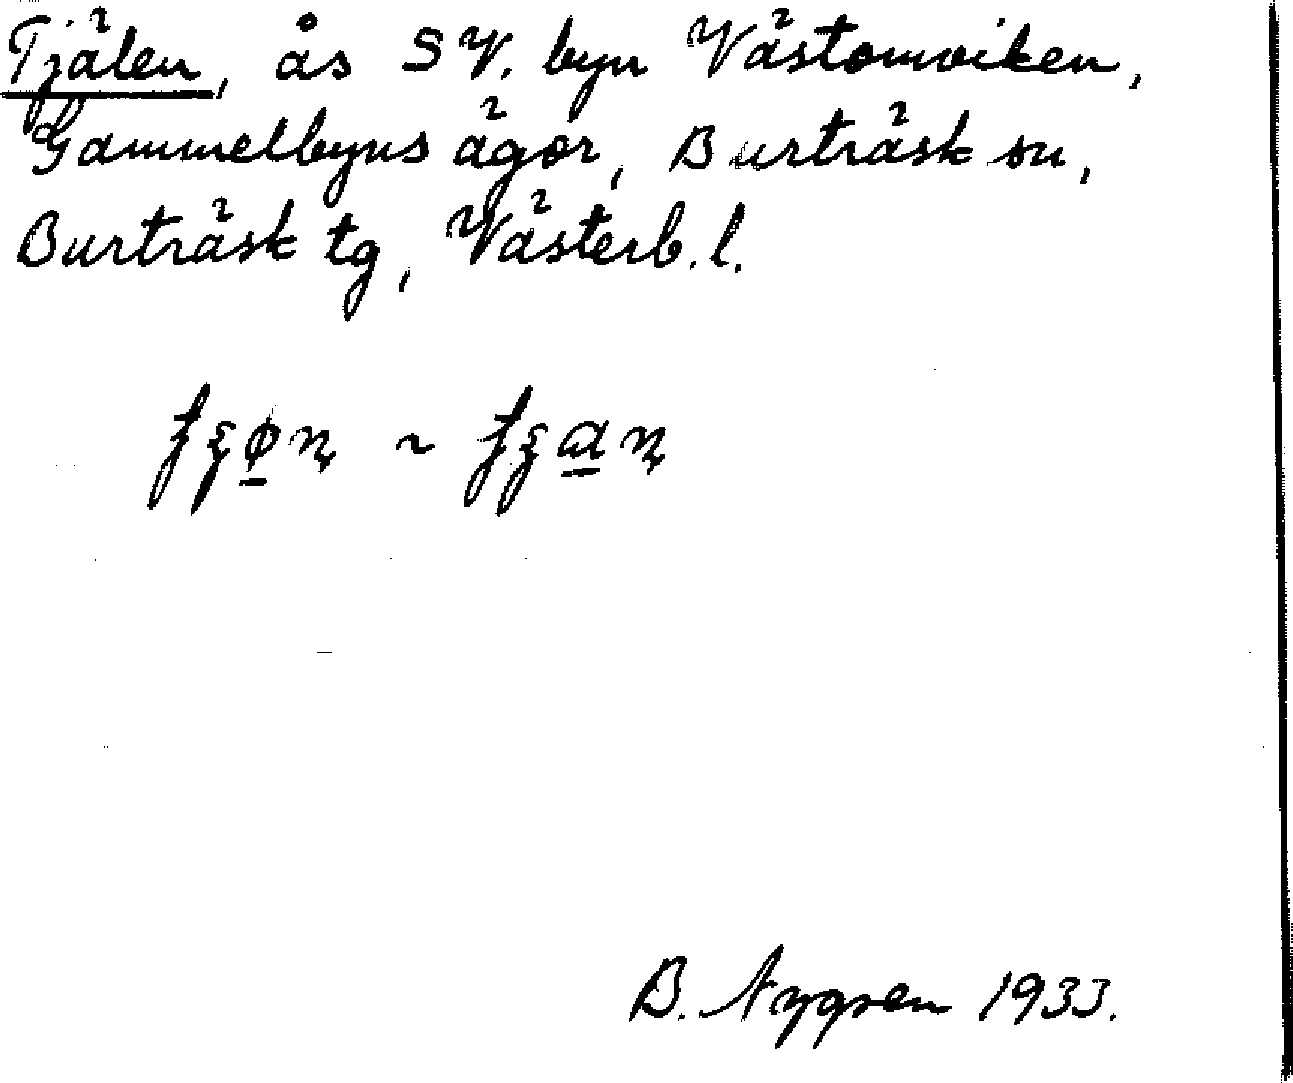 Tjälen, ås SV. byn Västomviken,
Gammelbyns ägor, Burträsk sn,
Burträsk tg, Västerb. l.
~
B. Nygren 1933.